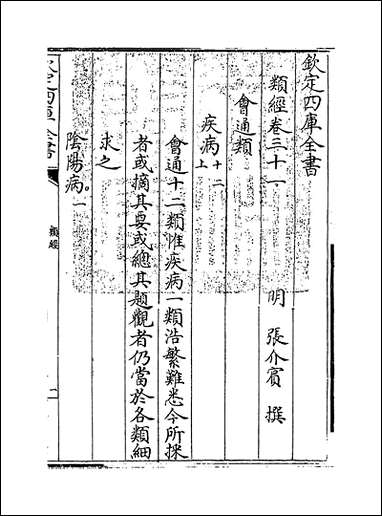 欽定四庫全書
類經卷三十一
明 張介賔 撰
會通類
疾病十二上
會通十二類惟疾病一類浩繁難悉今所採
者或摘其要或總其題觀者仍當於各類細
求之
陰陽病。一
類經